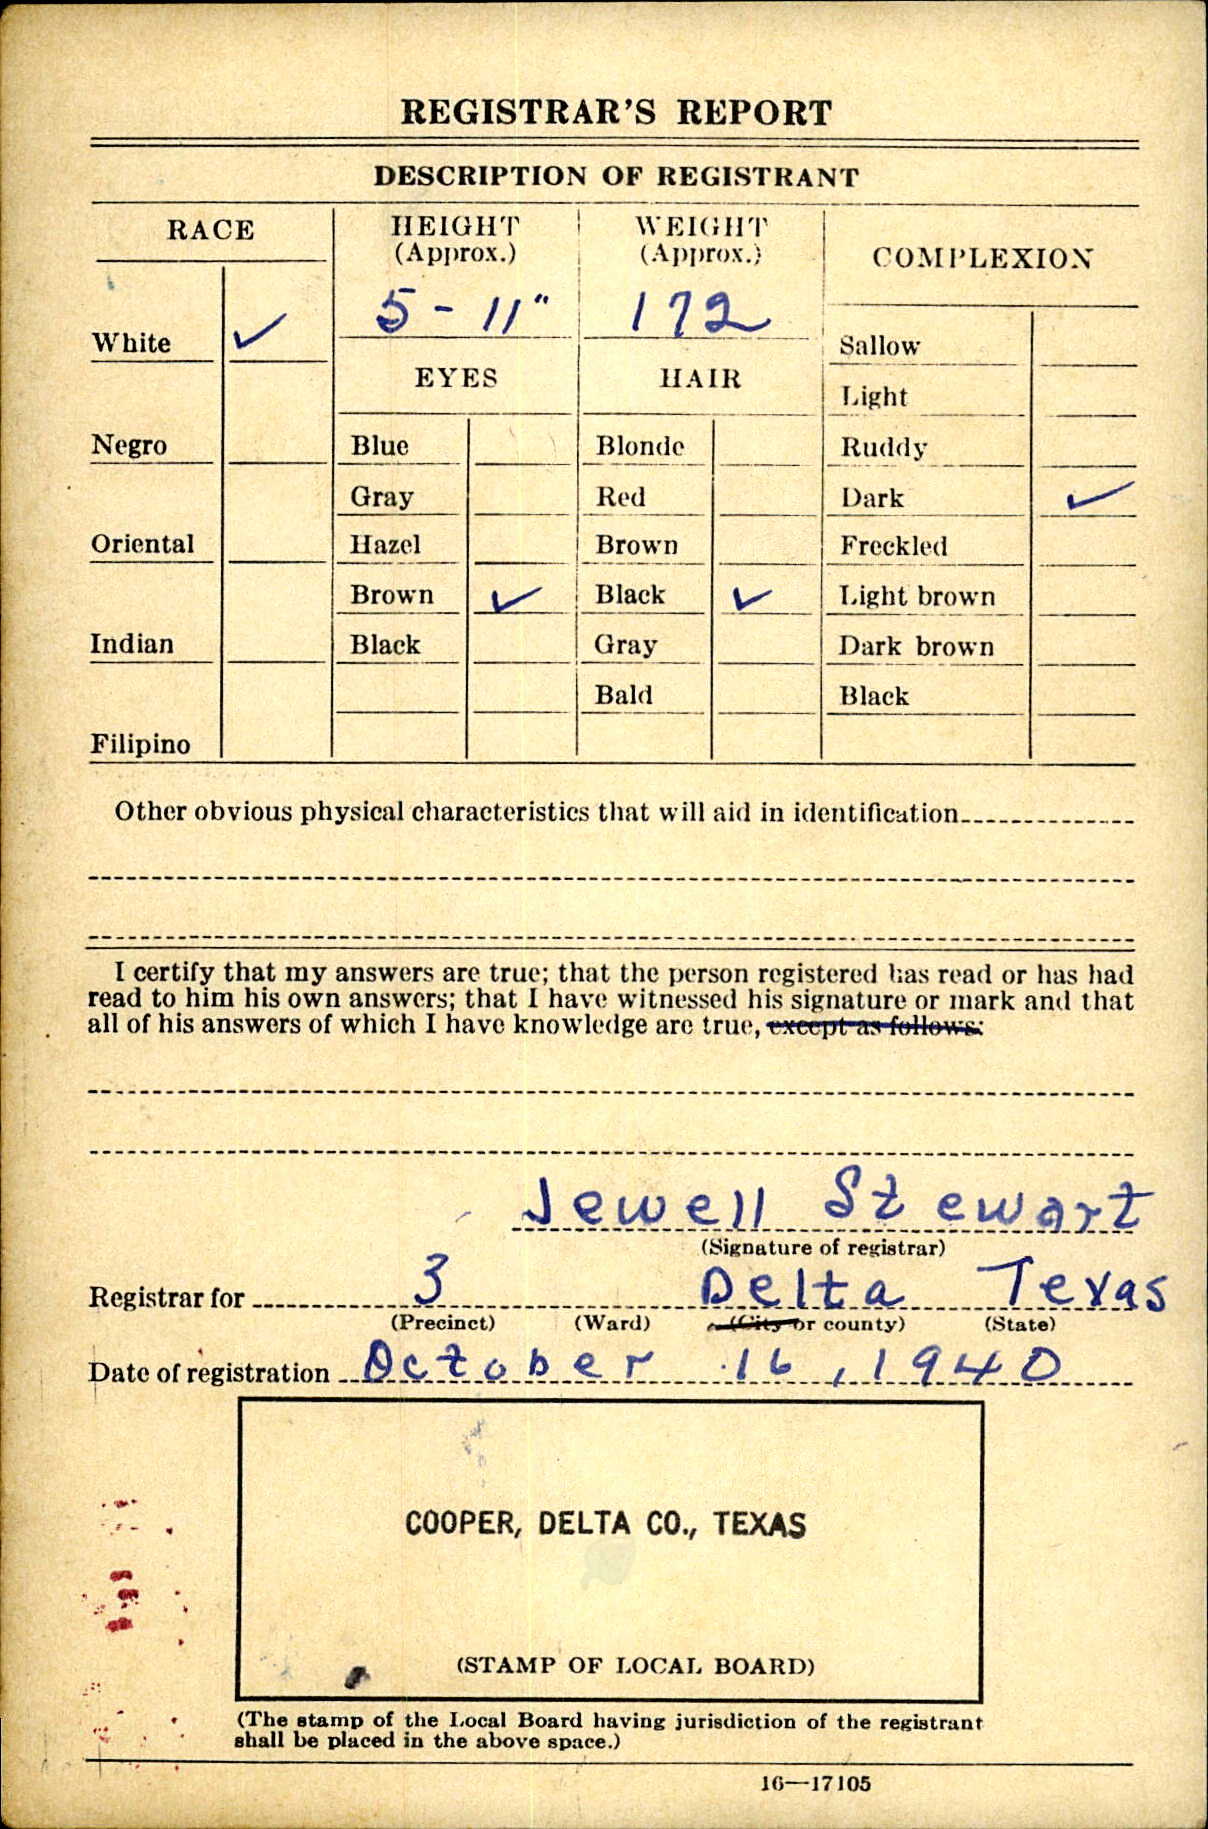 REGISTRAR'S REPORT
DESCRIPTION OF REGISTRANT
RACE
HEIGHT
(Approx.)
WEIGHT
(Approx.)
COMPLEXION
5 - 11"
172
White ✓
Sallow
EYES
HAIR
Light
Negro
Blue
Blonde
Ruddy
Gray
Red
Dark ✓
Oriental
Hazel
Brown
Freckled
Brown ✓
Black ✓
Light brown
Indian
Black
Gray
Dark brown
Bald
Black
Filipino
Other obvious physical characteristics that will aid in identification
I certify that my answers are true; that the person registered has read or has had
read to him his own answers; that I have witnessed his signature or mark and that
all of his answers of which I have knowledge are true, except as follows:
Jewell Stewart
(Signature of registrar)
Registrar for 3 Delta Texas
(Precinct) (Ward) (City or county) (State)
Date of registration October 16, 1940
COOPER, DELTA CO., TEXAS
(STAMP OF LOCAL BOARD)
(The stamp of the Local Board having jurisdiction of the registrant
shall be placed in the above space.)
16—17105